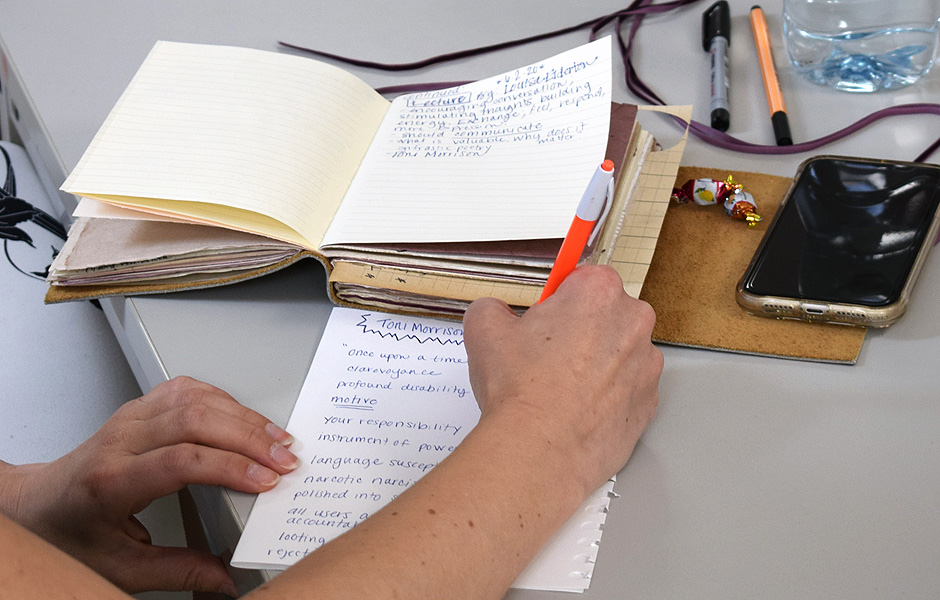 6.2.20
Lecture By Louisa Elderton
- encouraging conversation,
stimulating thoughts, building
energy, Exchange, feel, respond,
more
- should communicate
- what is valuable. why does it
matter
poetry
- Toni Morrison
Toni Morrison
"once upon a time
clarevoyance
profound disability
motive
your responsibility
instrument of
language
narcotic
polished into
all users
looting